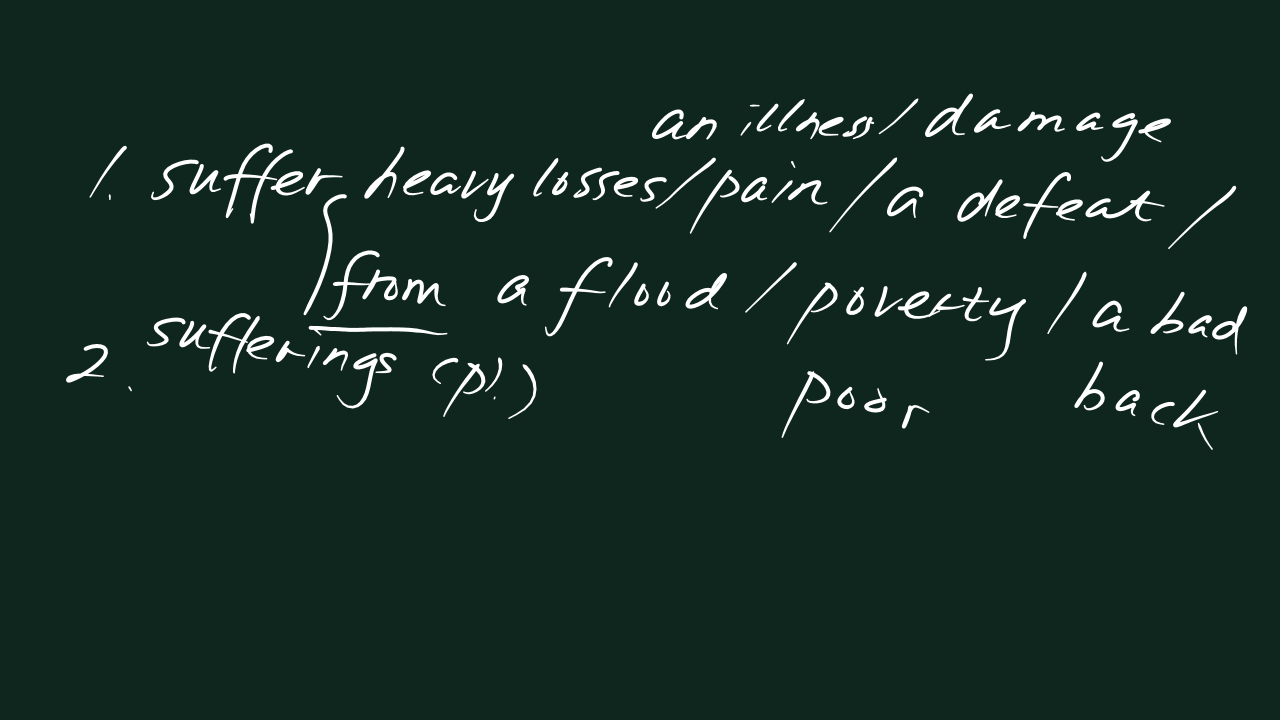 an illness/damage
1. suffer heavy losses/pain/a defeat/
from a flood/poverty/a bad
2. sufferings (pl.) poor back